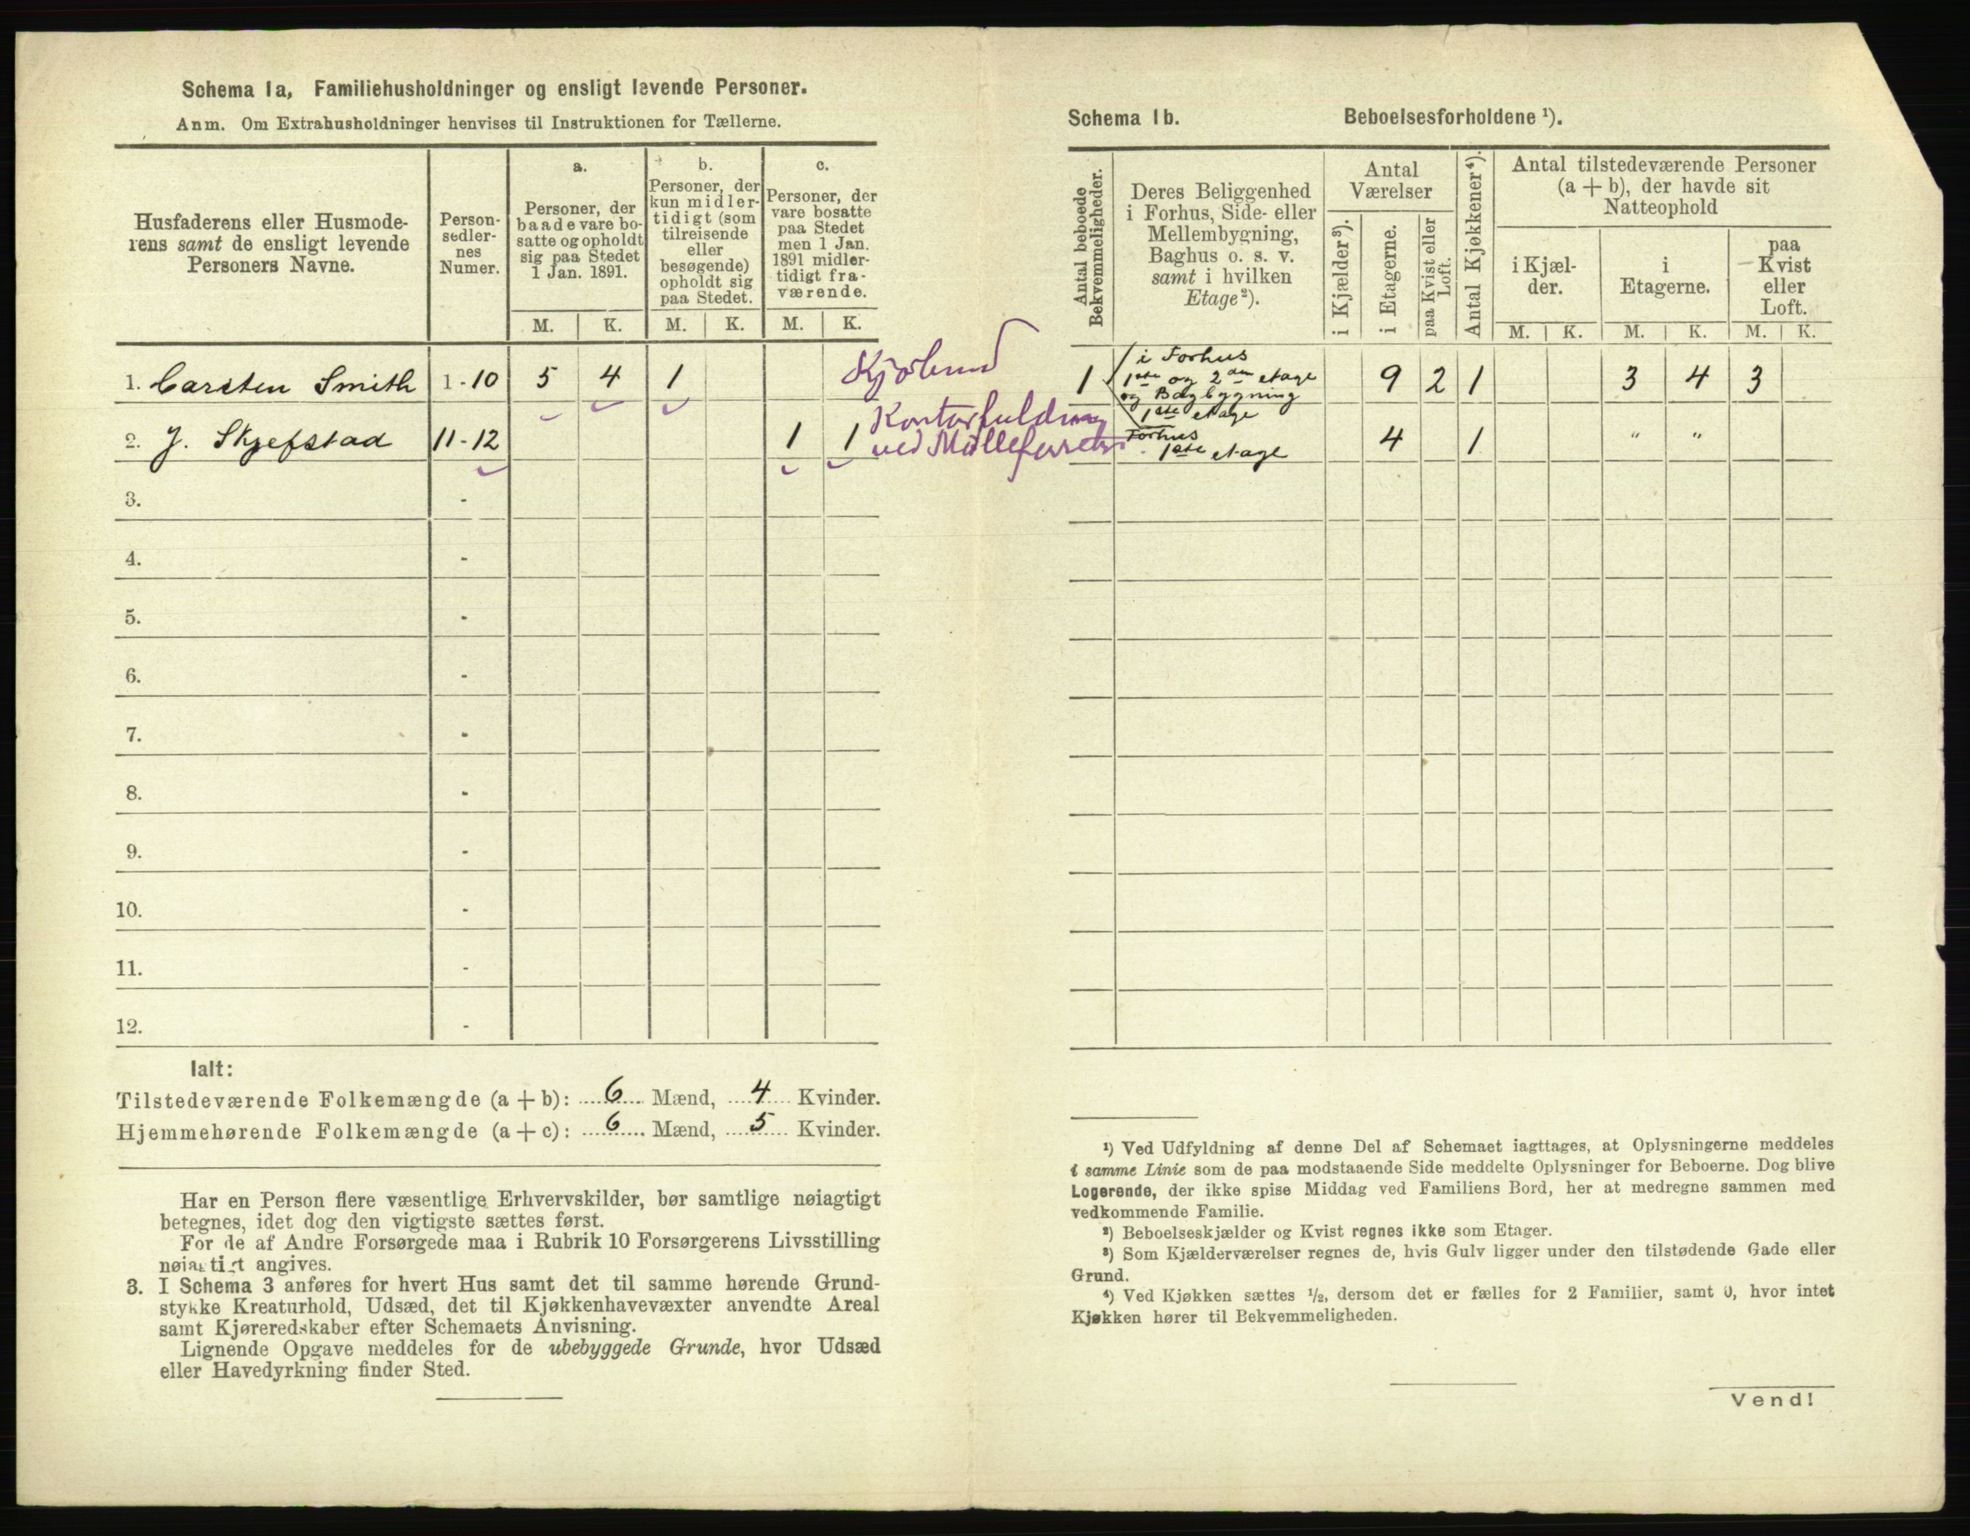 Schema 1a, Familiehusholdninger og ensligt levende Personer.
Anm. Om Extrahusholdninger henvises til Instruktionen for Tællerne.
Husfaderens eller Husmode-
rens samt de ensligt levende
Personers Navne.
Person-
sedler-
nes
Numer.
a.
Personer, der
baade vare bo-
satte og opholdt
sig paa Stedet
1 Jan. 1891.
M. K.
b.
Personer, der
kun midler-
tidigt (som
tilreisende
eller
besøgende)
opholdt sig
paa Stedet.
M. K.
c.
Personer, der
vare bosatte
paa Stedet
men 1 Jan.
1891 midler-
tidigt fra-
værende.
M. K.
1. Carsten Smith 1 - 10 5 4 1
2. J. Skjefstad 11 - 12 1 1
Kontorfuldmæg
ved
3. -
4. -
5. -
6. -
7. -
8. -
9. -
10. -
11. -
12. -
Ialt:
Tilstedeværende Folkemængde (a + b): 6 Mænd, 4 Kvinder.
Hjemmehørende Folkemængde (a + c): 6 Mænd, 5 Kvinder.
Har en Person flere væsentlige Erhvervskilder, bør samtlige nøiagtigt
betegnes, idet dog den vigtigste sættes først.
For de af Andre Forsørgede maa i Rubrik 10 Forsørgerens Livsstilling
nøiagtigt angives.
3. I Schema 3 anføres for hvert Hus samt det til samme hørende Grund-
stykke Kreaturhold, Udsæd, det til Kjøkkenhavevæxter anvendte Areal
samt Kjøreredskaber efter Schemaets Anvisning.
Lignende Opgave meddeles for de ubebyggede Grunde, hvor Udsæd
eller Havedyrkning finder Sted.
Schema 1b. Beboelsesforholdene ¹).
Antal beboede
Bekvemmeligheder.
Deres Beliggenhed
i Forhus, Side- eller
Mellembygning,
Baghus o. s. v.
samt i hvilken
Etage²).
Antal
Værelser
i Kjælder³).
i Etagerne.
paa Kvist eller
Loft.
Antal Kjøkkener⁴).
Antal tilstedeværende Personer
(a + b), der havde sit
Natteophold
i Kjæl-
der.
M. K.
i
Etagerne.
M. K.
paa
Kvist
eller
Loft.
M. K.
i Forhus
1 1ste og 2den etage 9 2 1 3 4 3
og Bagbygning
1ste etage
Forhus 4 1 " "
1ste etage
¹) Ved Udfyldning af denne Del af Schemaet iagttages, at Oplysningerne meddeles
i samme Linie som de paa modstaaende Side meddelte Oplysninger for Beboerne. Dog blive
Logerende, der ikke spise Middag ved Familiens Bord, her at medregne sammen med
vedkommende Familie.
²) Beboelseskjælder og Kvist regnes ikke som Etager.
³) Som Kjælderværelser regnes de, hvis Gulv ligger under den tilstødende Gade eller
Grund.
⁴) Ved Kjøkken sættes ½, dersom det er fælles for 2 Familier, samt 0, hvor intet
Kjøkken hører til Bekvemmeligheden.
Vend!